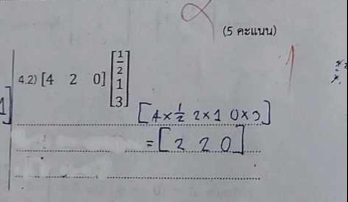 (5 คะแนน)
1
4.2) [4 2 0] [1/2 1 3]
[4×1/2 2×1 0×3]
= [2 2 0]